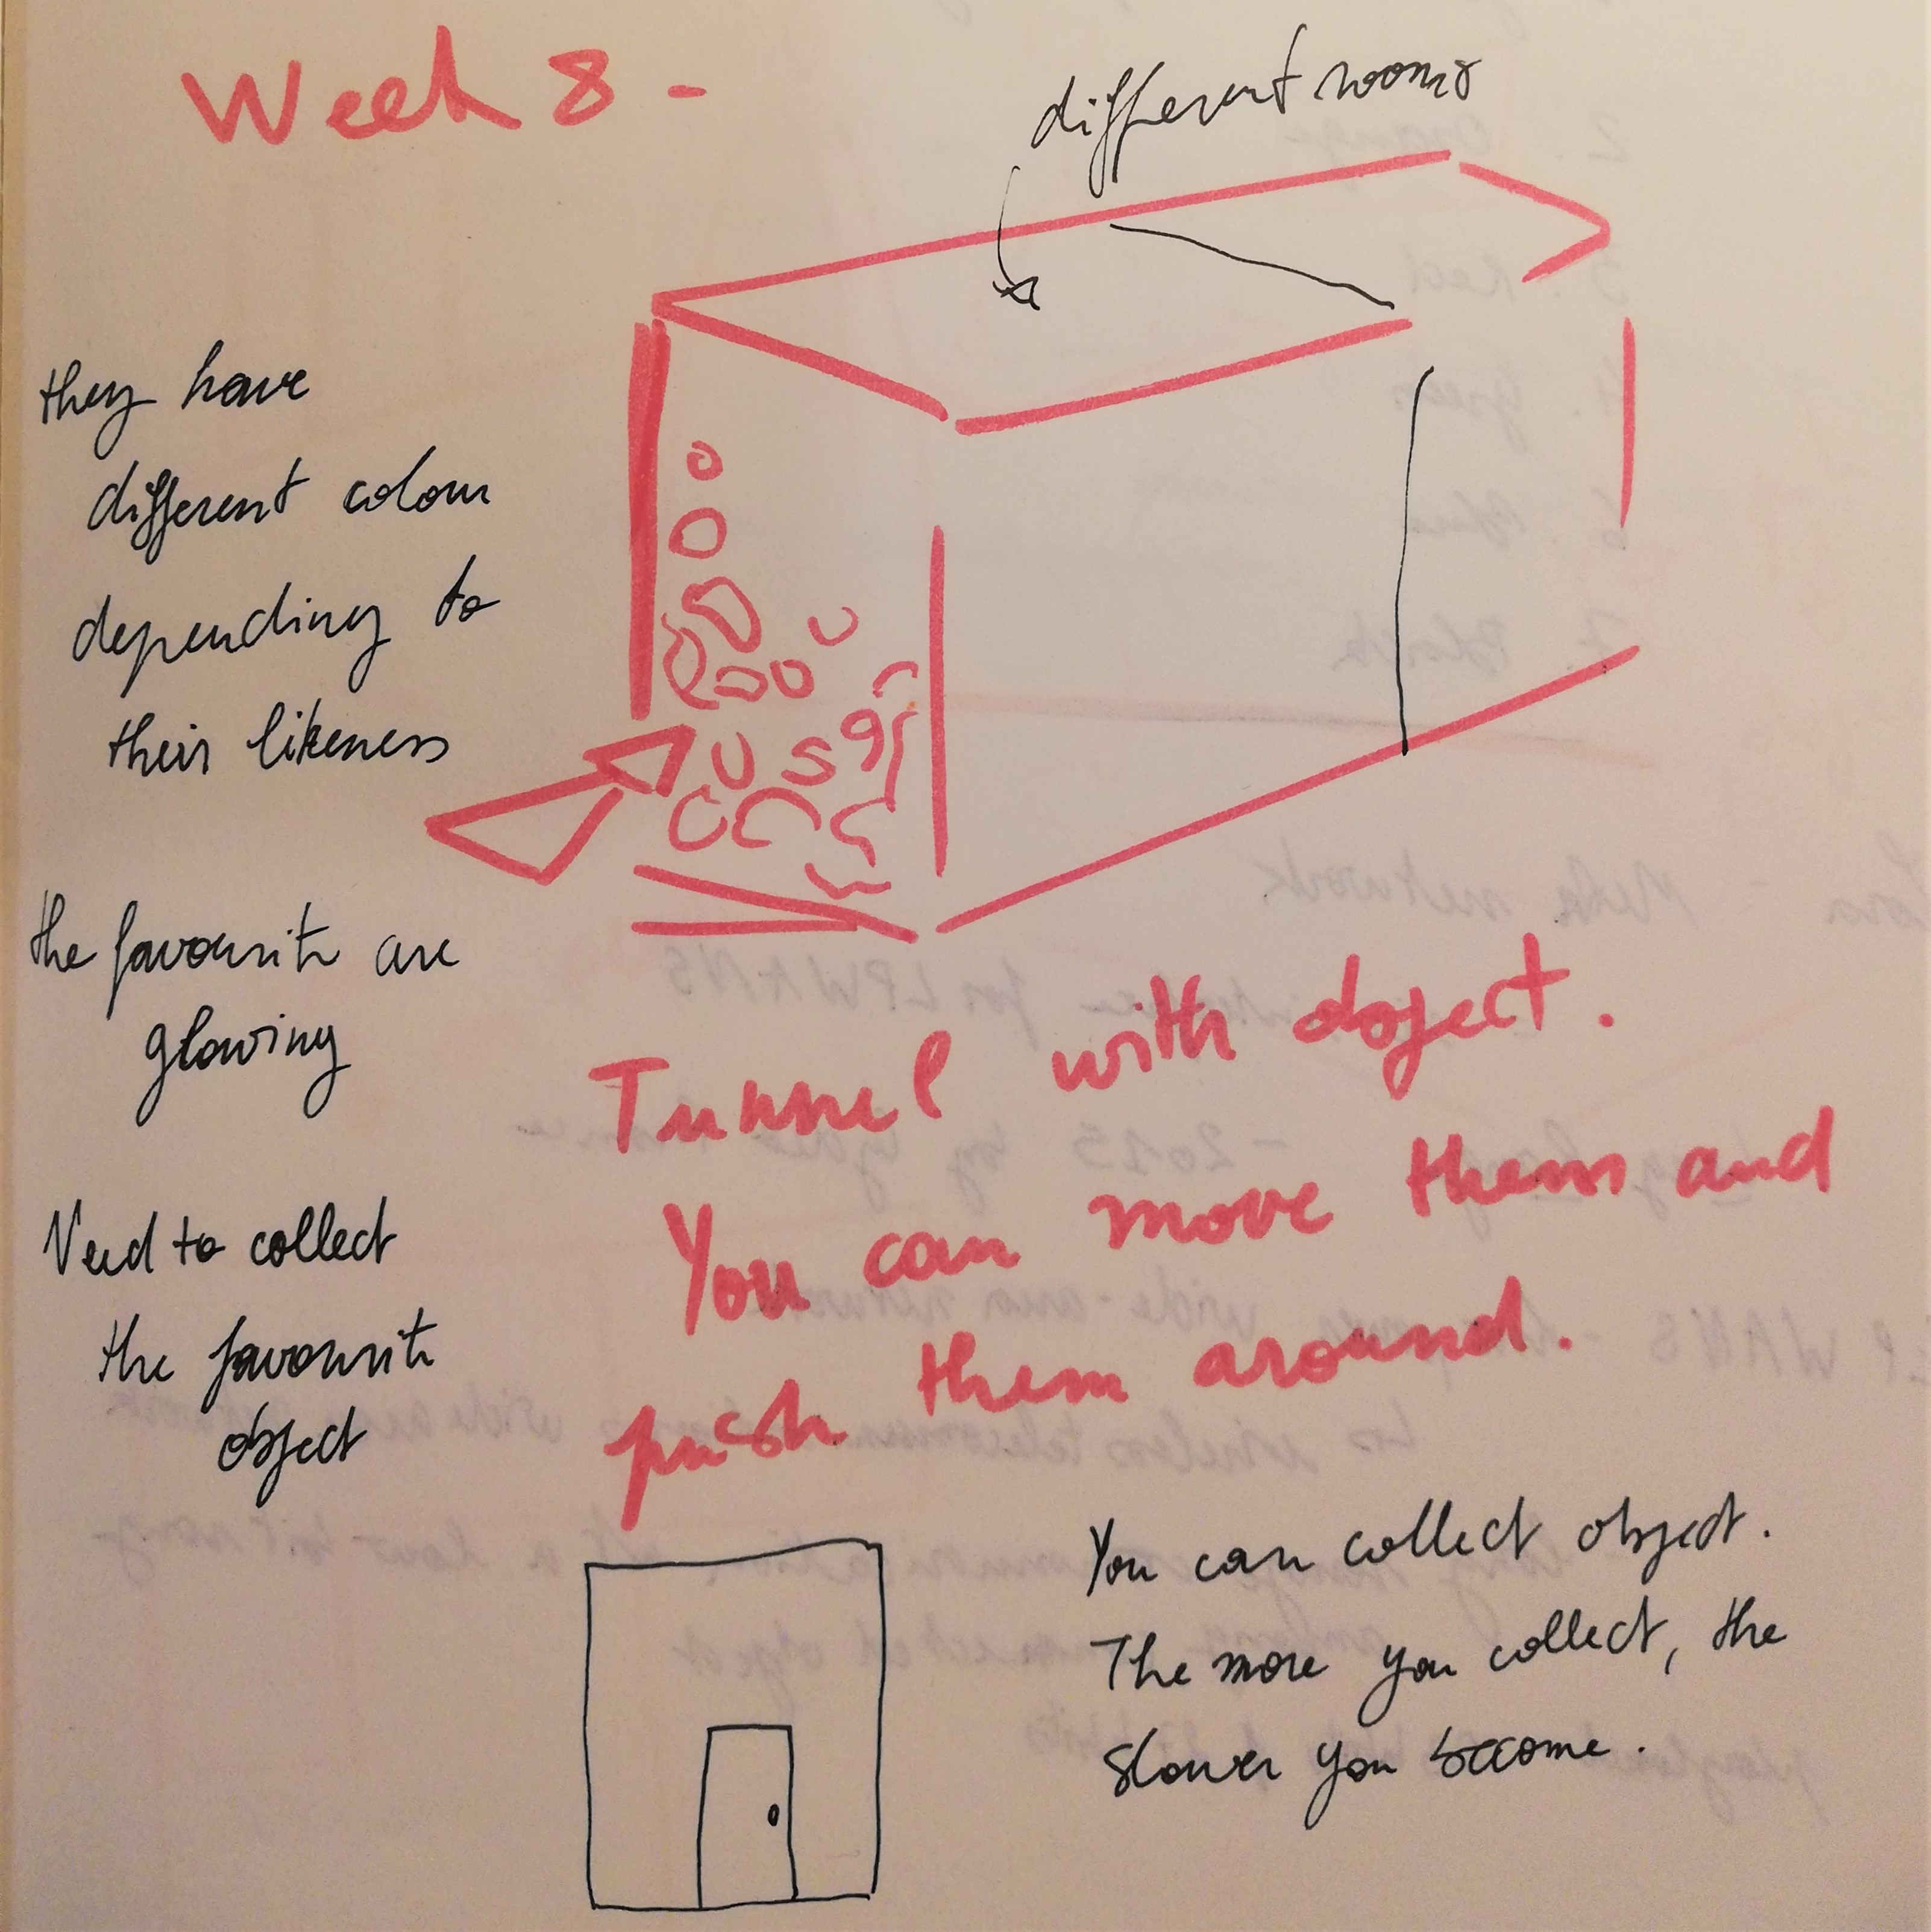 Week 8 -
different rooms
they have
different colour
depending to
their likeness
the favourite are
glowing
Need to collect
the favourite
object
Tunnel with object.
You can move them and
push them around.
You can collect object.
The more you collect, the
slower you become.